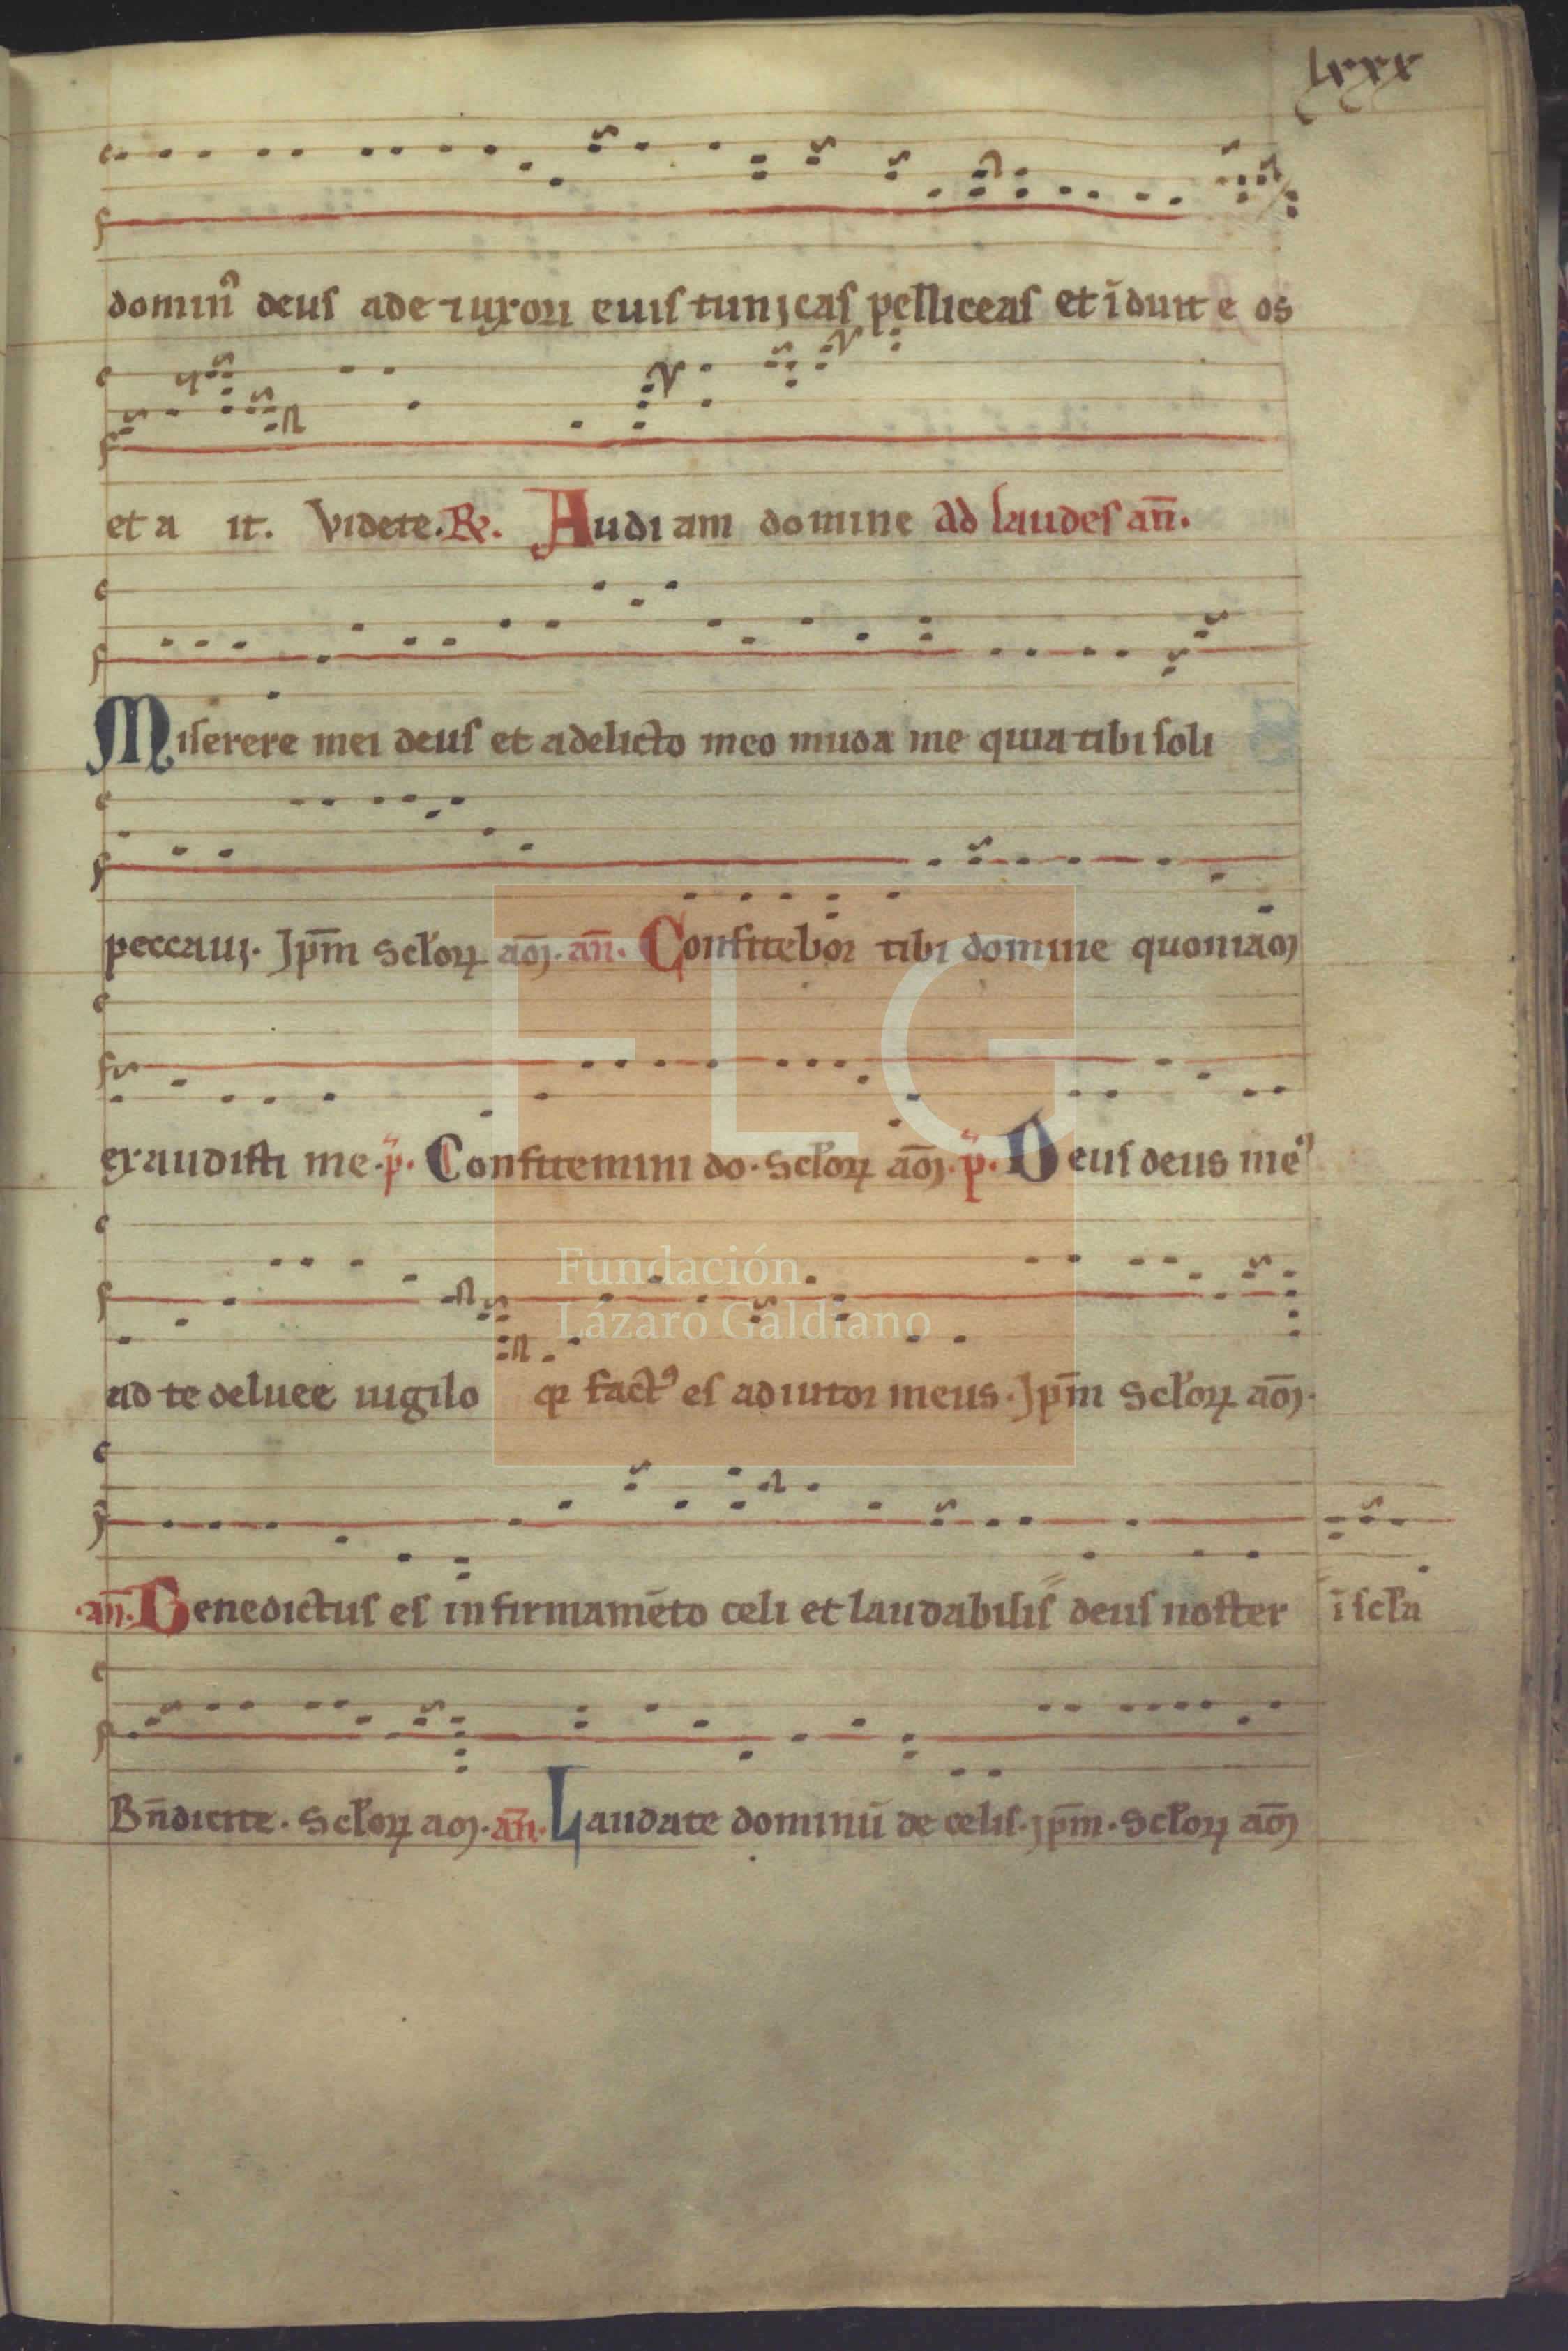 lxxx
dominꝰ deus ade ⁊ uxori euis tunicas pelliceas et īduit e os
et a it. Videte. ℟. Audi am domine Ad laudes an̄.
Miserere mei deus et a delicto meo muda me quia tibi soli
peccaui. Ip̄m sc̄loꝝ am̄. an̄. Confitebor tibi domine quoniam
exaudisti me. p̄. Confitemini do. sc̄loꝝ am̄. p̄. Deus deus meꝰ
ad te de luce uigilo qr factꝰ es adiutor meus. Ip̄m sc̄loꝝ am̄.
an̄. Benedictus es in firmamēto celi et laudabilis deus noster ī sc̄la
Bn̄dicite. sc̄loꝝ am. an̄. Laudate dominū de celis. ip̄m. sc̄loꝝ am̄
FLG
Fundación
Lázaro Galdiano